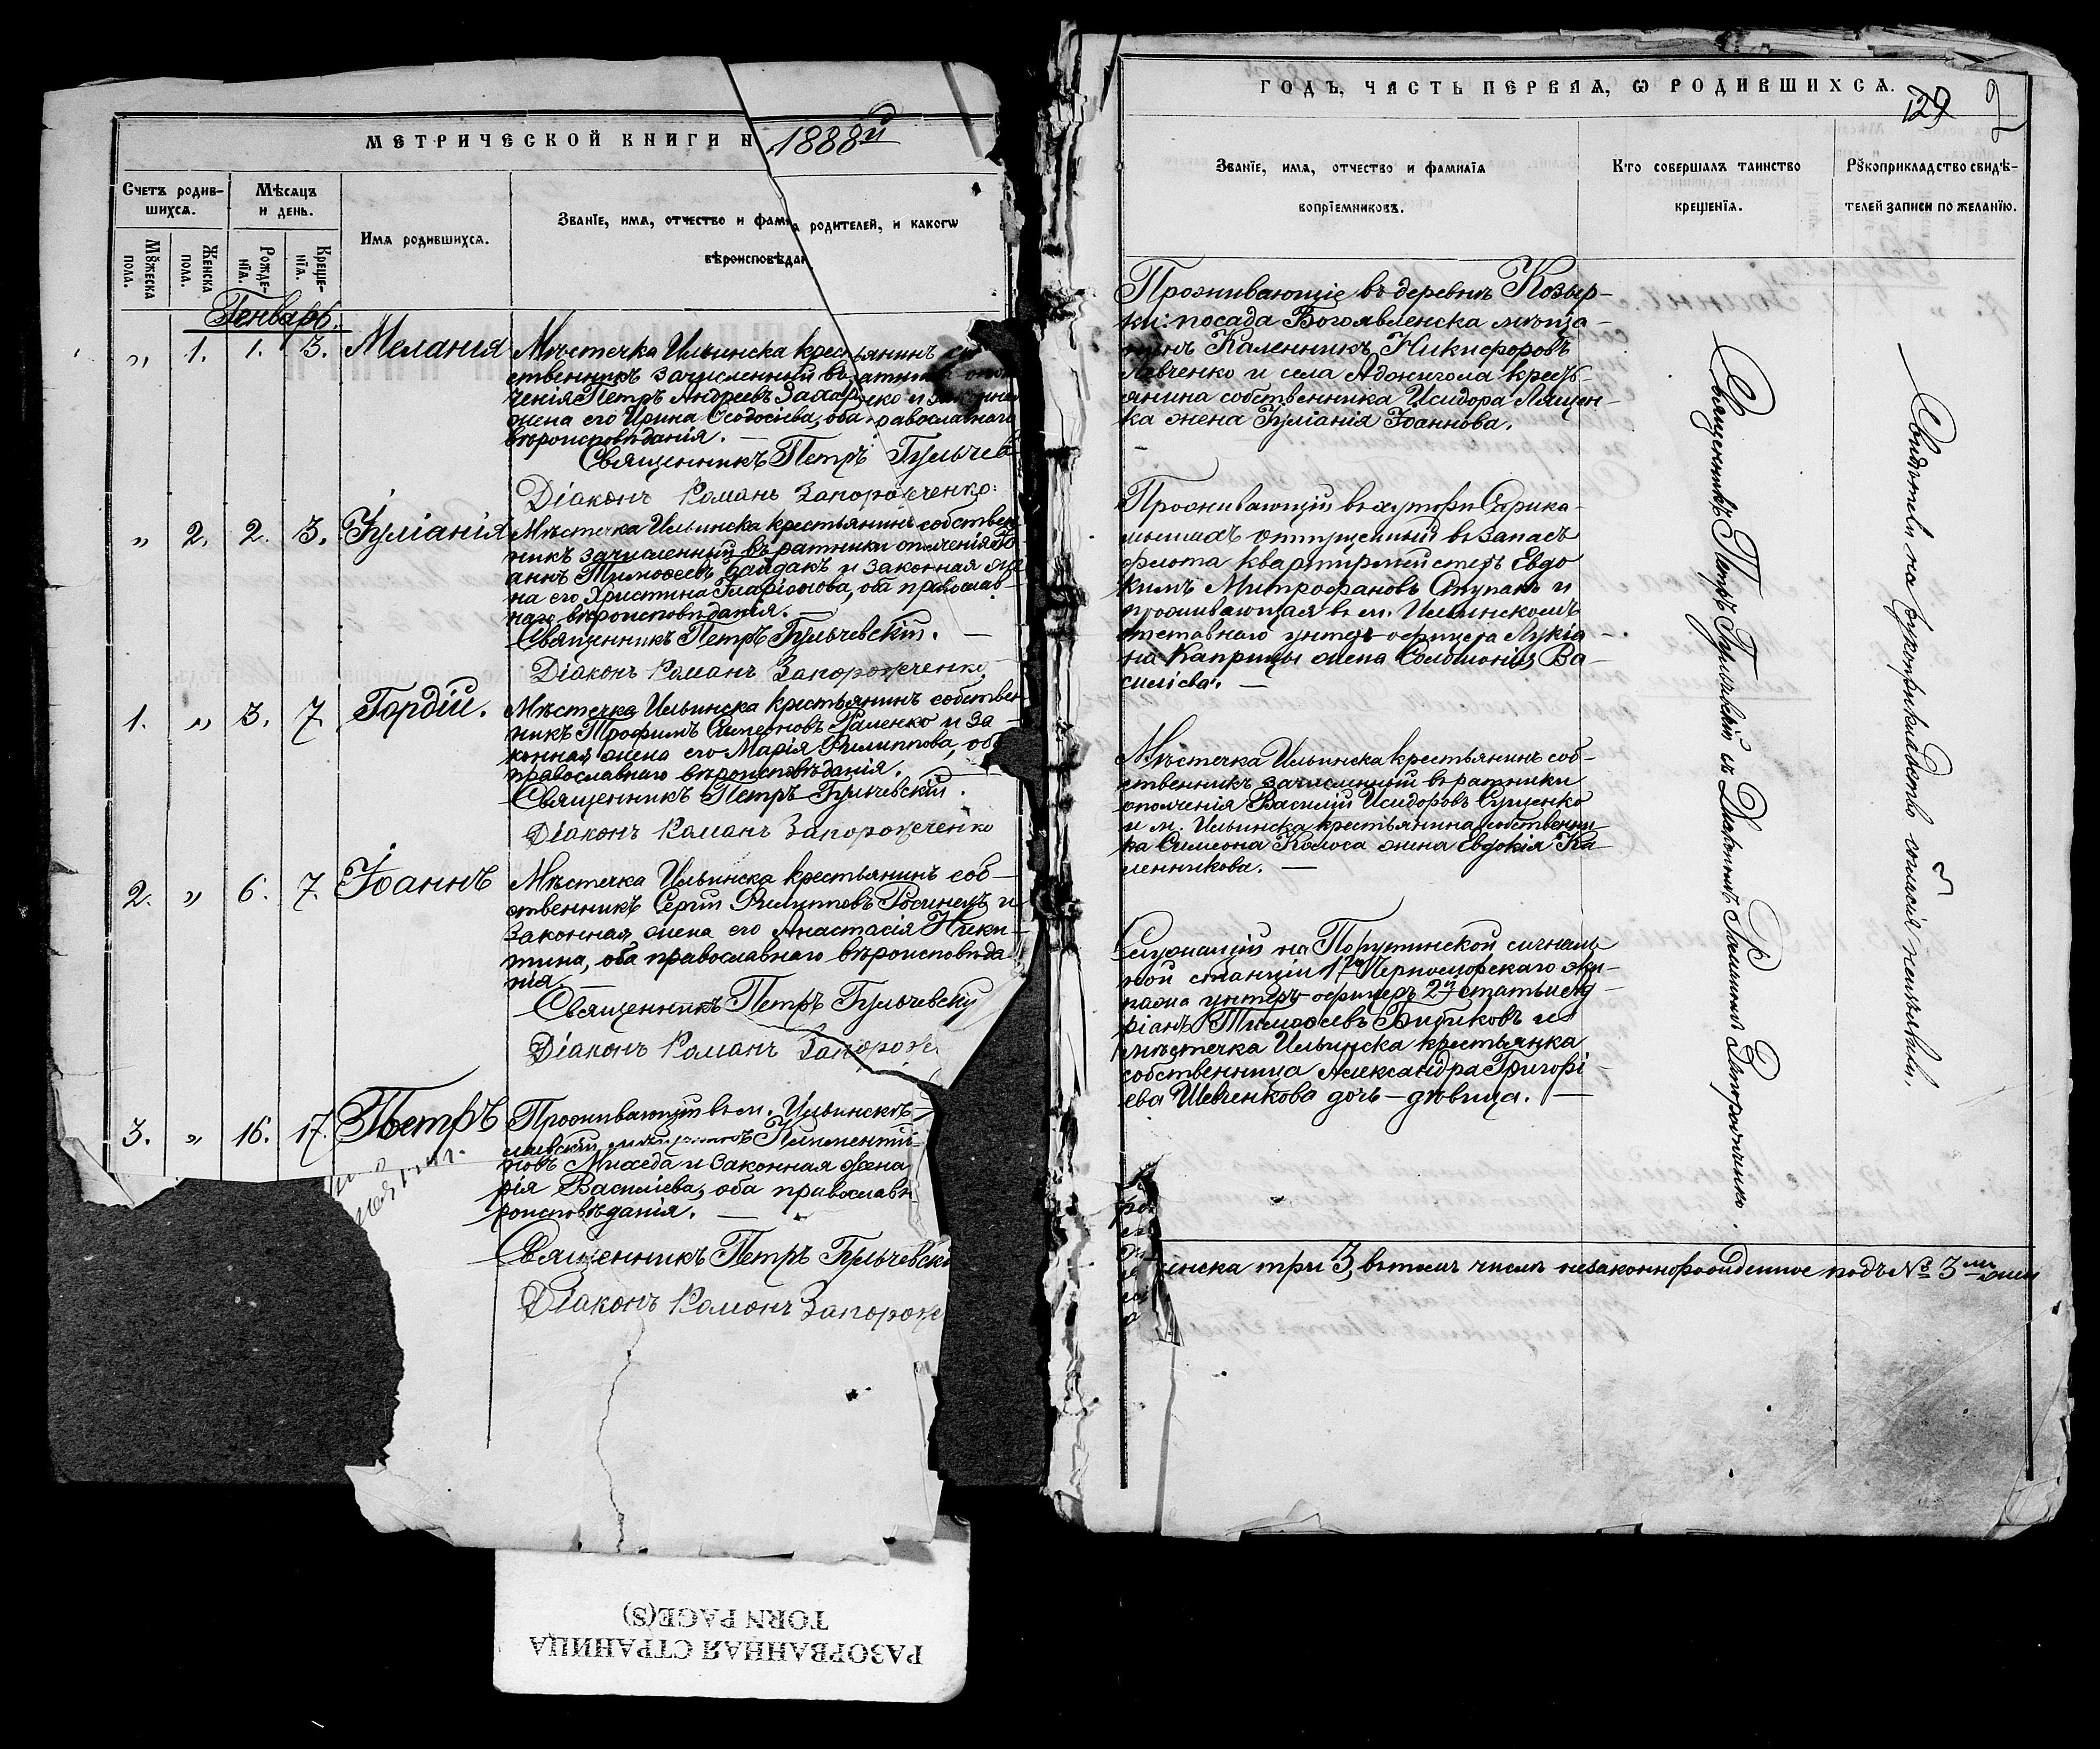 МЕТРИЧЕСКОЙ КНИГИ Н 1888й
Счетъ родив-
шихсѧ.
Мꙋжеска
пола.
Женска
пола.
Мѣсѧцъ
и день.
Рожде-
нїѧ.
Креще-
нїѧ.
Имѧ родившихсѧ.
Званїе, имѧ, отчество и фами родителей, и какогѡ
вѣроисповѣдан
Генварь.
„ 1. 1. 3. Меланія
Мѣстечка Ильинска крестьянинъ со
ственникъ зачисленный въ ратники опол
ченія Петръ Андреевъ Захарченко и законная
жена его Ирина Ѳеодосіева, оба православнаго
вѣроисповѣданія. —
Священникъ Петръ Гульчев
Діаконъ Романъ Запорожченко:
„ 2. 2. 3. Іуліанія
Мѣстечка Ильинска крестьянинъ собствен
никъ зачисленный въ ратники ополченія Іо
аннъ Тимоѳеевъ Байдакъ и законная же
на его Христина Иларіонова, оба православ-
наго вѣроисповѣданія. —
Священникъ Петръ Гульчевскій. —
Діаконъ Романъ Запорожченко
1. „ 3. 7. Гордій.
Мѣстечка Ильинска крестьянинъ собствен
никъ Трофимъ Симеоновъ Галенко и за-
конная жена его Марія Филиппова, оба
православнаго вѣроисповѣданія. —
Священникъ Петръ Гульчевскій.
Діаконъ Романъ Запорожченко
2. „ 6. 7. Іоаннъ
Мѣстечка Ильинска крестьянинъ соб-
ственникъ Сергій Филипповъ и
законная жена его Анастасія Ники-
тина, оба православнаго вѣроисповѣда
нія —
Священникъ Петръ Гульчевскій
Діаконъ Романъ Запорож
3. „ 16. 17. Петръ
Проживающій въ м. Ильинскѣ-
Климентій
новъ Михеда и законная жена
рія Василіева, оба православн
роисповѣданія. —
Священникъ Петръ Гульчевск
Діаконъ Романъ Запорож
РАЗОРВАННАЯ СТРАНИЦА
TORN PAGE(S)
ГОДЪ, ЧАСТЬ ПЕРВАѦ, Ѡ РОДИВШИХСѦ.
129 2
Званїе, имѧ, отчество и фамилїѧ
воспрїемниковъ.
Кто совершалъ таинство
крещенїѧ.
Рꙋкоприкладство свидѣ-
телей записи по желанїю.
Проживающіе въ деревнѣ Козыр-
ки: посада Богоявленска мѣща-
нинъ Каленникъ Никифоровъ
Левченко и села Адокигола кресть-
янина собственника Исидора Лящен-
ка жена Іуліанія Іоаннова.
Проживающій въ хуторѣ Сарика-
мышахъ отпущенный въ запасъ
флота квартирмейстеръ Евдо
кимъ Митрофановъ Ступакъ и
проживающая въ м. Ильинскомъ
отставнаго унтеръ-офицера Лукіа-
на Каприцы жена Соломонія Ва-
силіева. —
Мѣстечка Ильинска крестьянинъ соб-
ственникъ зачисленный въ ратники
ополченія Василій Исидоровъ Сущенко
и м. Ильинска крестьянина собственни-
ка Симеона Колоса жена Евдокія Ка-
ленникова. —
Служащій на Порутинской сигналь
ной станціи 1го Черноморскаго Эки-
пажа унтеръ-офицеръ 2й статьи Ад-
ріанъ Тимоѳеевъ Бибиковъ и
мѣстечка Ильинска крестьянка
собственница Александра Григорі-
ева Шевченкова дочь-дѣвица. —
Священникъ Петръ Гульчевскій съ Діакономъ Романомъ Запорожченко.
Свидѣтели на рукоприкладство согласія не изъявили.
енска три 3, въ томъ числѣ незаконнорожденное подъ № 3мъ